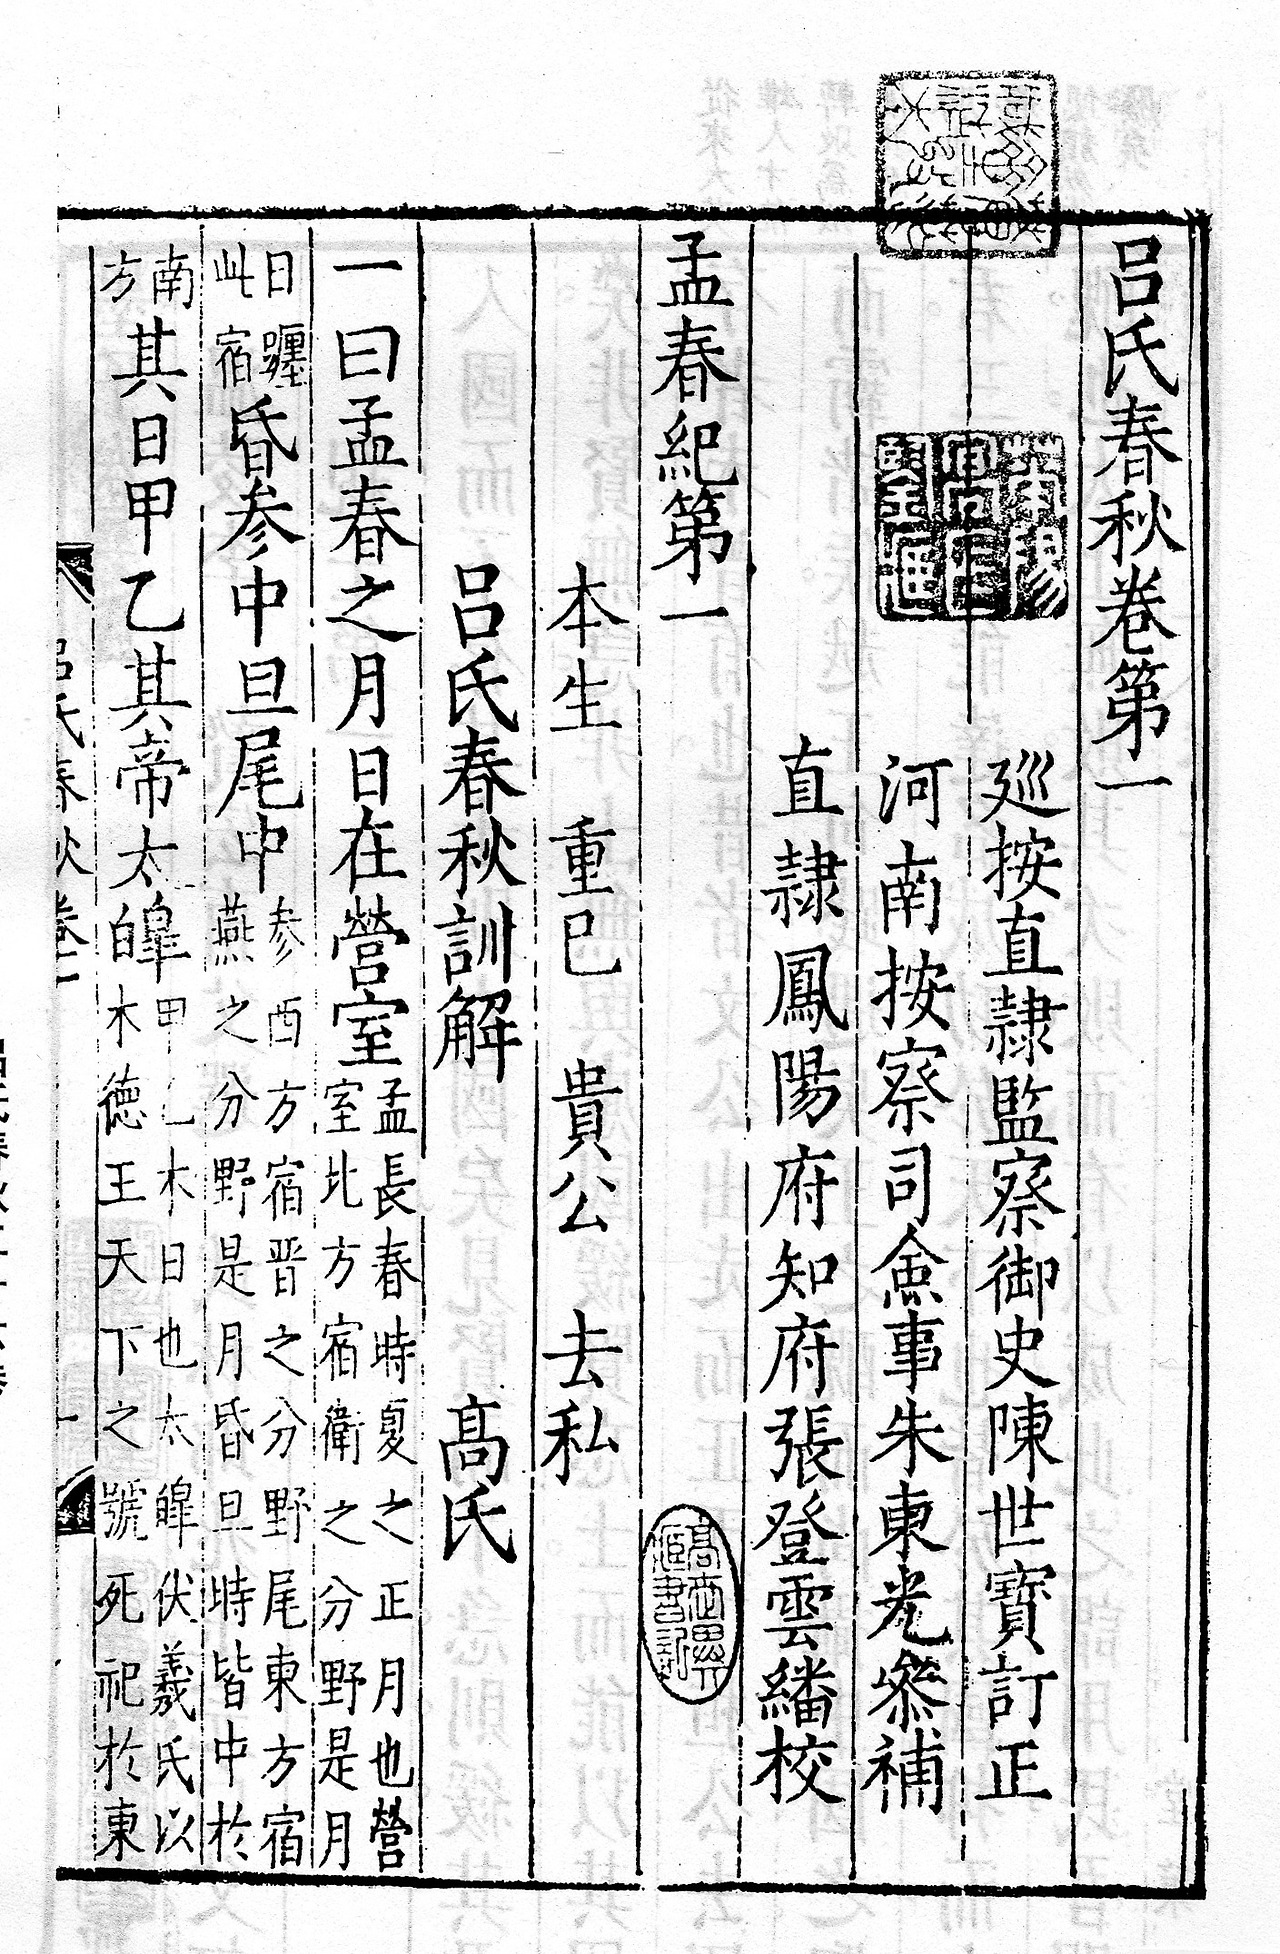 呂氏春秋卷第一
巡按直隷監察御史陳世寶訂正
河南按察司僉事朱東光叅補
直隷鳳陽府知府張登雲繙校
孟春紀第一
本生 重巳 貴公 去私
呂氏春秋訓解 高氏
一曰孟春之月日在營室孟長春時夏之正月也營
室北方宿衛之分野是月
日躔
此宿昏参中旦尾中参西方宿晋之分野尾東方宿
燕之分野是月昏旦時皆中於
南
方其日甲乙其帝太皥甲乙木日也太皥伏羲氏以
木德王天下之號死祀於東
呂氏春秋卷一
一